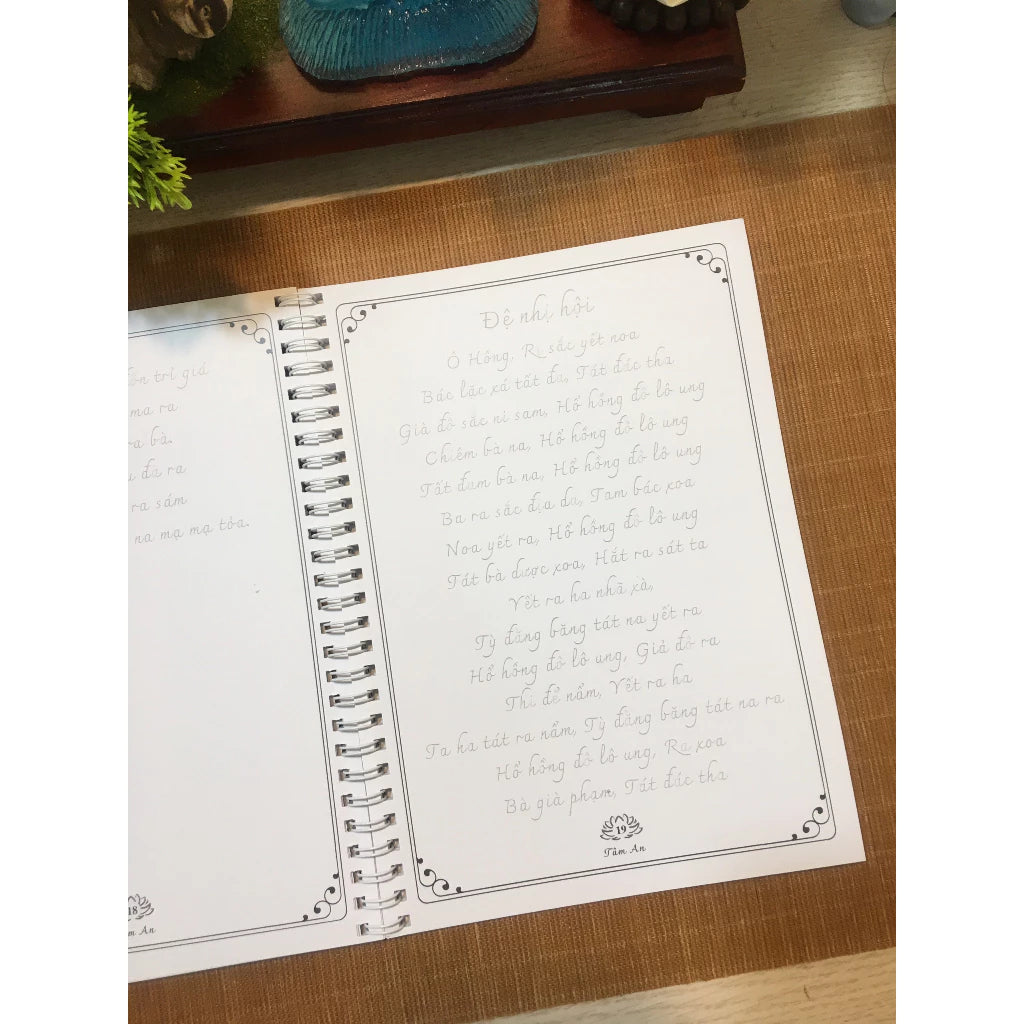 ôn trĩ giá
ma ra
ra bà.
đa ra
ra sám
na mạ mạ tỏa.
18
m An
Đệ nhị hội
Ô Hồng, Rị sắc yết noa
Bác lặc xá tất đa, Tát đác tha
Già đô sắc ni sam, Hổ hồng đô lô ung
Chiêm bà na, Hổ hồng đô lô ung
Tất đam bà na, Hổ hồng đô lô ung
Ba ra sắc địa da, Tam bác xoa
Noa yết ra, Hổ hồng đô lô ung
Tát bà dược xoa, Hắt ra sát ta
Yết ra ha nhã xà,
Tỳ đằng băng tát na yết ra
Hổ hồng đô lô ung, Giả đô ra
Thi để nẩm, Yết ra ha
Ta ha tát ra nẩm, Tỳ đằng băng tát na ra
Hổ hồng đô lô ung, Ra xoa
Bà già phạm, Tát đác tha
19
Tâm An